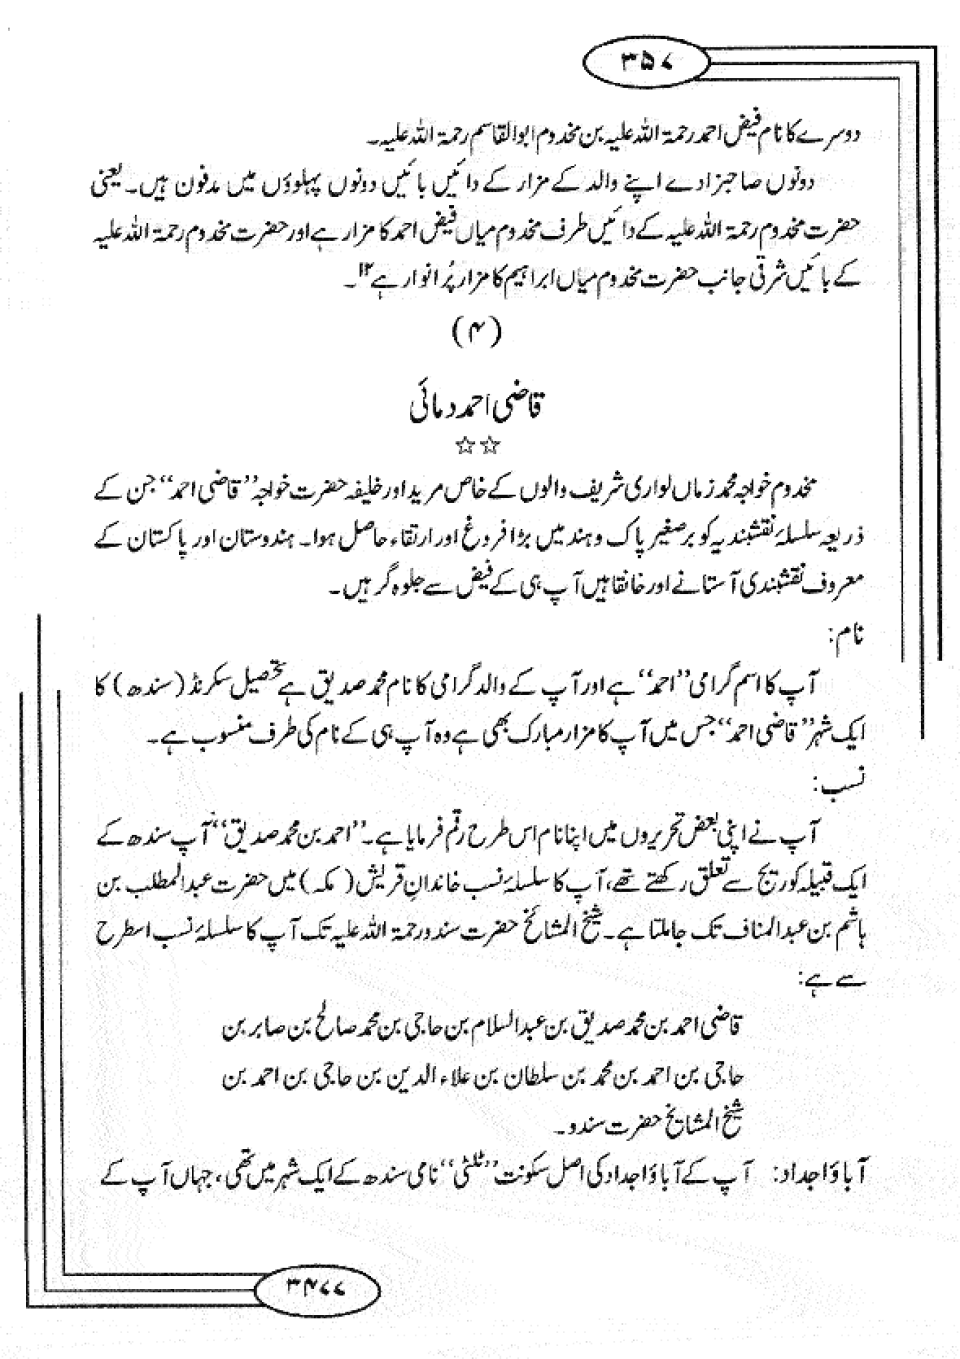 ۳۵۷
دوسرے کا نام فیض احمد رحمۃ اللہ علیہ بن مخدوم ابوالقاسم رحمۃ اللہ علیہ۔
دونوں صاحبزادے اپنے والد کے مزار کے دائیں بائیں دونوں پہلوؤں میں مدفون ہیں۔ یعنی
حضرت مخدوم رحمۃ اللہ علیہ کے دائیں طرف مخدوم میاں فیض احمد کا مزار ہے اور حضرت مخدوم رحمۃ اللہ علیہ
کے بائیں شرقی جانب حضرت مخدوم میاں ابراہیم کا مزار پُرانوار ہے۱۲۔
(۴)
قاضی احمد دمائی
☆☆
مخدوم خواجہ محمد زماں لواری شریف والوں کے خاص مرید اور خلیفہ حضرت خواجہ ”قاضی احمد“ جن کے
ذریعہ سلسلۂ نقشبندیہ کو برصغیر پاک و ہند میں بڑا فروغ اور ارتقاء حاصل ہوا۔ ہندوستان اور پاکستان کے
معروف نقشبندی آستانے اور خانقاہیں آپ ہی کے فیض سے جلوہ گر ہیں۔
نام:
آپ کا اسم گرامی ”احمد“ ہے اور آپ کے والد گرامی کا نام محمد صدیق ہے تحصیل سکرنڈ (سندھ) کا
ایک شہر ”قاضی احمد“ جس میں آپ کا مزار مبارک بھی ہے وہ آپ ہی کے نام کی طرف منسوب ہے۔
نسب:
آپ نے اپنی بعض تحریروں میں اپنا نام اس طرح رقم فرمایا ہے۔ ”احمد بن محمد صدیق“ آپ سندھ کے
ایک قبیلہ کوریج سے تعلق رکھتے تھے، آپ کا سلسلۂ نسب خاندانِ قریش (مکہ) میں حضرت عبدالمطلب بن
ہاشم بن عبدالمناف تک جا ملتا ہے۔ شیخ المشائخ حضرت سندو رحمۃ اللہ علیہ تک آپ کا سلسلۂ نسب اسطرح
سے ہے:
قاضی احمد بن محمد صدیق بن عبدالسلام بن حاجی بن محمد صالح بن صابر بن
حاجی بن احمد بن محمد بن سلطان بن علاء الدین بن حاجی بن احمد بن
شیخ المشایخ حضرت سندو۔
آباؤاجداد: آپ کے آباؤاجداد کی اصل سکونت ”ٹلٹی“ نامی سندھ کے ایک شہر میں تھی، جہاں آپ کے
۳۴۷۷